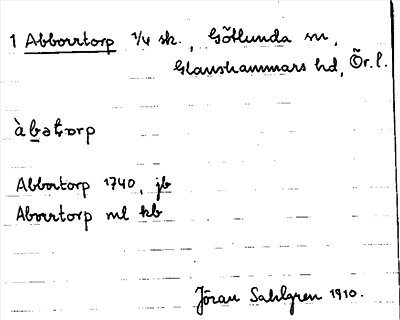 1 Abborrtorp 1/4 sk., Götlunda sn,
Glanshammars hd, Ör. l.
àbətɔrp
Abbortorp 1740, jb
Aborrtorp ml kb
Jöran Sahlgren 1910.